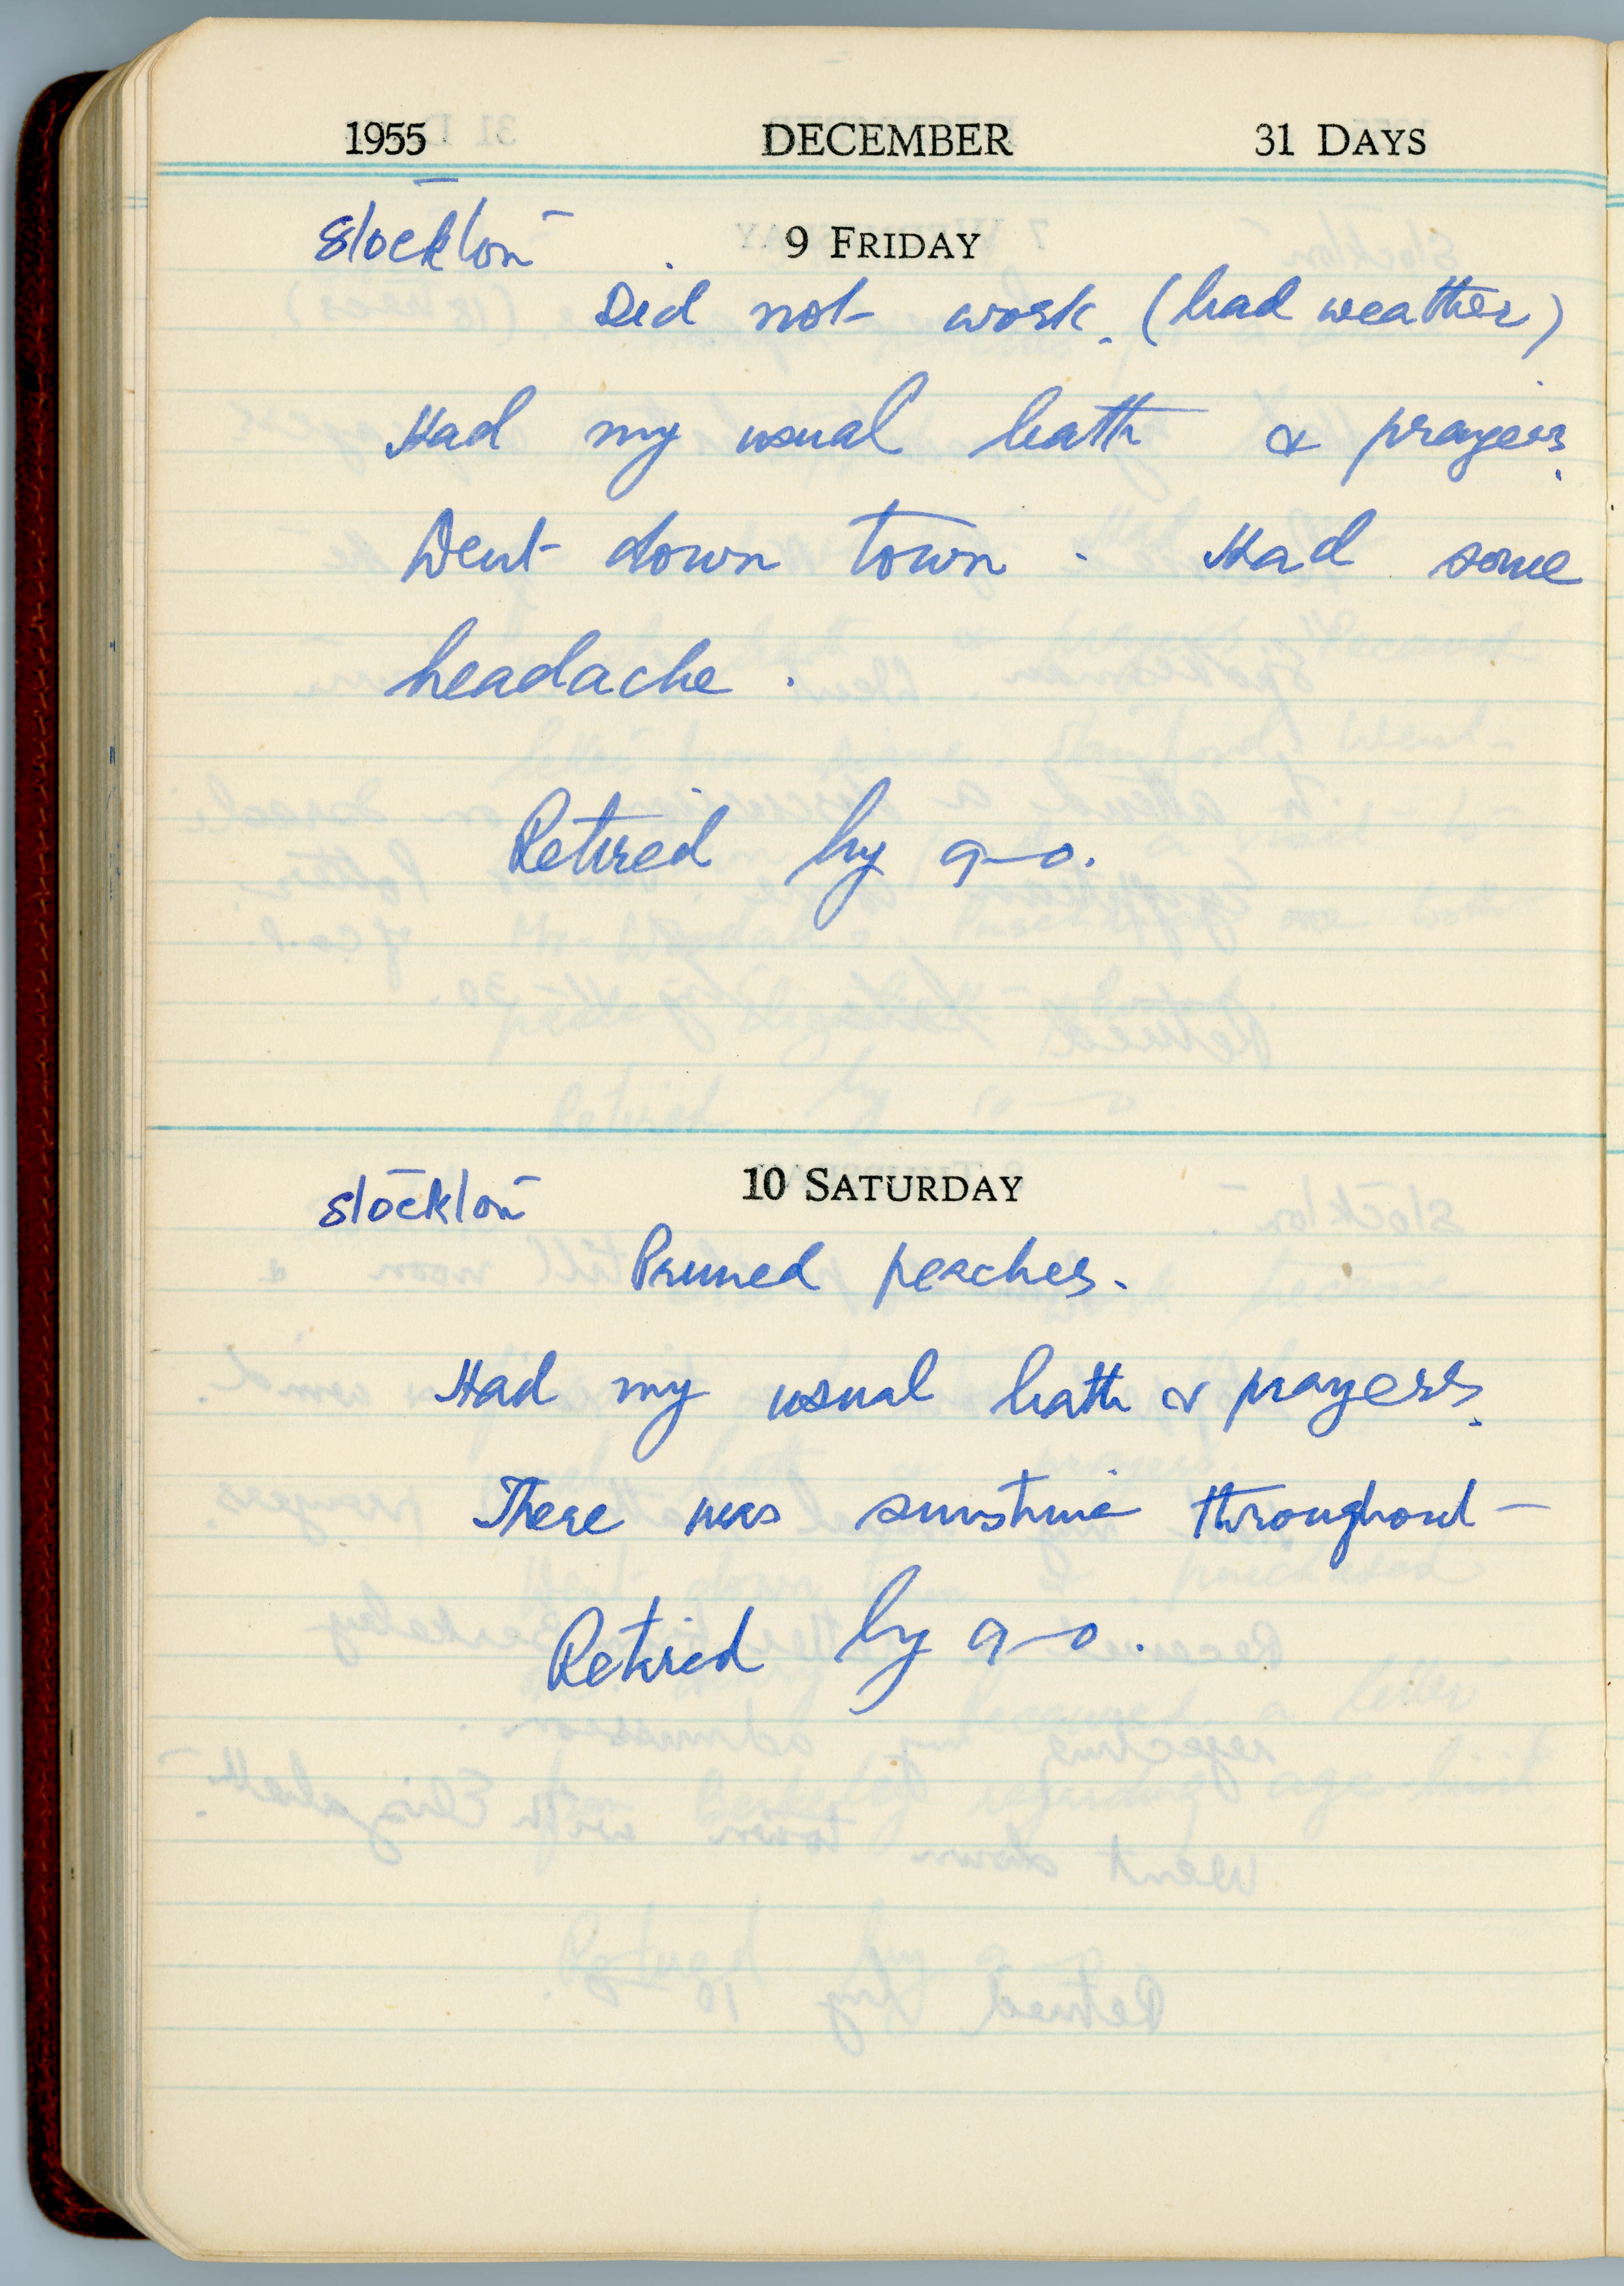 1955 DECEMBER 31 DAYS
Stockton 9 FRIDAY
Did not work. (bad weather)
Had my usual bath & prayers.
Went down town. Had some
headache.
Retired by 9-0.
Stockton 10 SATURDAY
Pruned peaches.
Had my usual bath & prayers.
There was sunshine throughout-
Retired by 9-0.